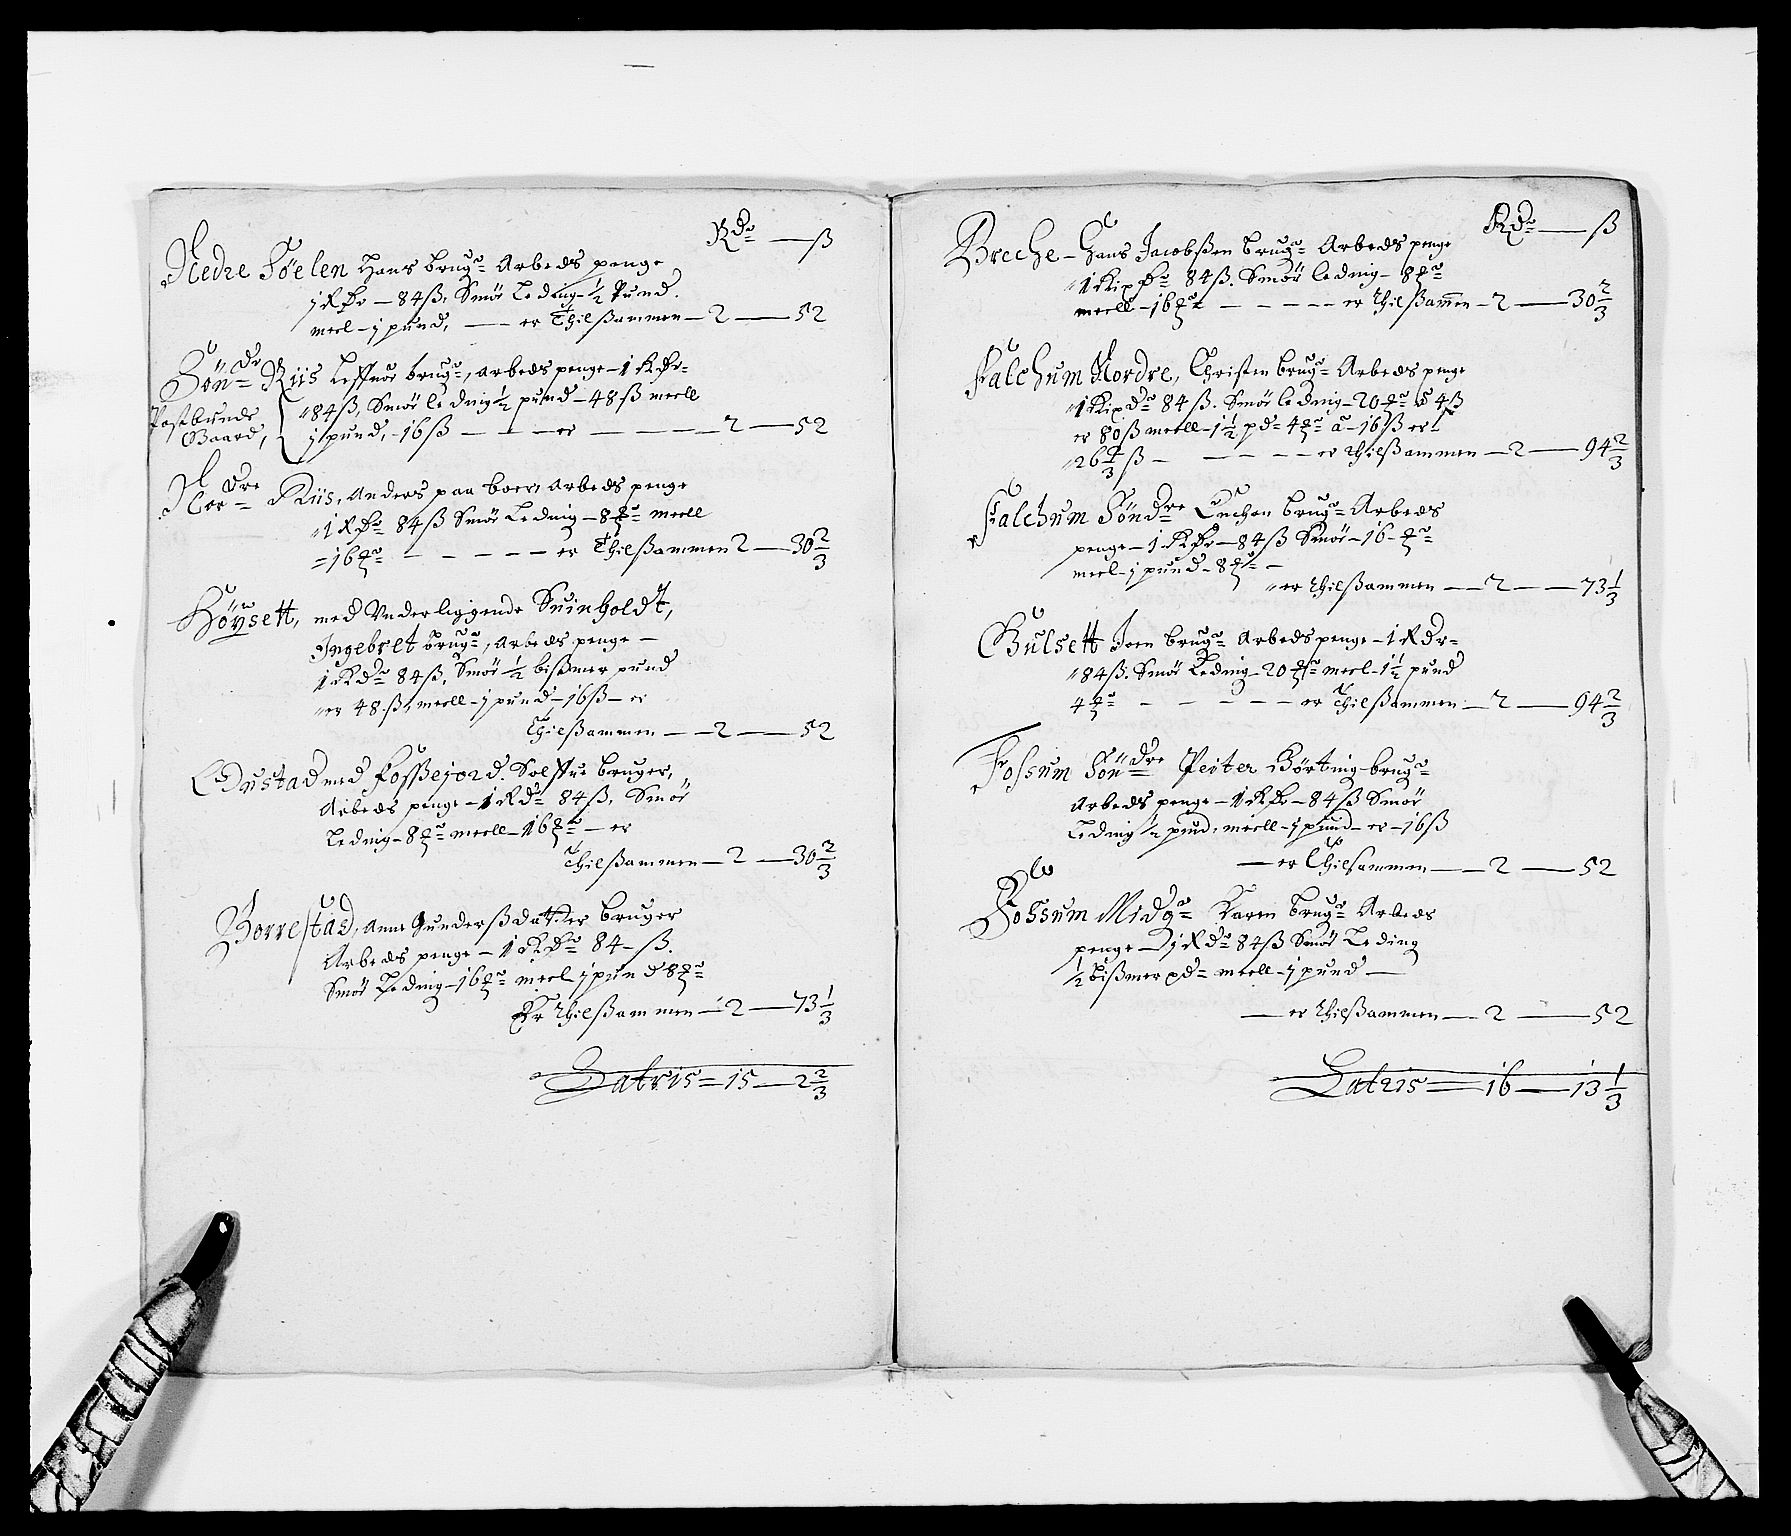 Rdr — ß
Nedre Föelen Hans brugr Arbeds penge
j Rdr — 84 ß, Smör Leding ½ Pund.
meel - j pund, — er Thilßammen — 2 — 52
Söndr Riis Leffuor brugr, arbeds penge - 1 Rdr -
Postbunds Gaard, 84 ß, Smör lednig ½ pund - 48 ß meell
j pund, - 16 ß — er — 2 — 52
Nordre Riis, Anders paa boer, arbeds penge
1 Rdr 84 ß Smör Lednig - 8 mrk meell
= 16 mrk — er Thilßammen 2 — 30 2/3
Höysett, med Underliggende Suinholdt,
Ingebret brugr, arbeds penge —
1 Rdr 84 ß, Smör ½ bißmer pund
er 48 ß, meell - j pund - 16 ß - er
Thilßammen — 2 — 52
Gustad med Foßejord. Solffue bruger,
Arbeds penge - 1 Rdr 84 ß, Smör
Lednig - 8 mrk meell - 16 mrk — er
Thilßammen — 2 — 30 2/3
Borrestad, Anne Gunderßdatter bruger
Arbeds penge - 1 Rdr 84 - ß.
Smör Leding - 16 mrk meel j pund 8 mrk
Er Thilßammen — 2 — 73 1/3
Latris = 15 — 2 2/3
Rdr — ß
Breche - Hans Jacobßen brugr Arbeds penge
1 Rixdr 84 ß. Smör lednig - 8 mrk
meell - 16 mrk — er Thilßammen - 2 — 30 2/3
Falchum Nordre, Christen brugr Arbeds penge
1 Rixdr 84 ß. Smör lednig - 20 mrk a 4 ß
er 80 ß meell - 1 ½ pd - 4 mrk a - 16 ß er
26 2/3 ß — er Thilßammen — 2 — 94 2/3
Falchum Söndre brugr Arbeds
penge - 1 Rdr - 84 ß Smör - 16 - mrk
meel - j pund - 8 mrk —
er Thilßammen — 2 — 73 1/3
Gulsett Joen brugr Arbeds penge - 1 Rdr -
84 ß. Smör Leding - 20 mrk meel - 1 ½ pund
4 mrk — er Thilßammen — 2 — 94 2/3
Fossum Söndre Peiter Börting brugr
Arbeds penge - 1 Rdr - 84 ß Smör
Leding ½ pund, meell - j pund - er - 16 ß
— er Thilsammen — 2 — 52
Fossum Midgr Karen brugr Arbeds
penge — j Rdr 84 ß Smör Leding
½ bißmer pd meell - j pund —
— er Thilßammen — 2 — 52
Latris = 16 — 13 1/3